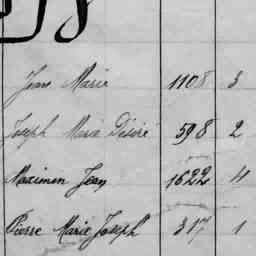 Jean Marie 1108 3
Joseph Marie Désiré 598 2
Maximen Jean 1622 4
Pierre Marie Joseph 317 1